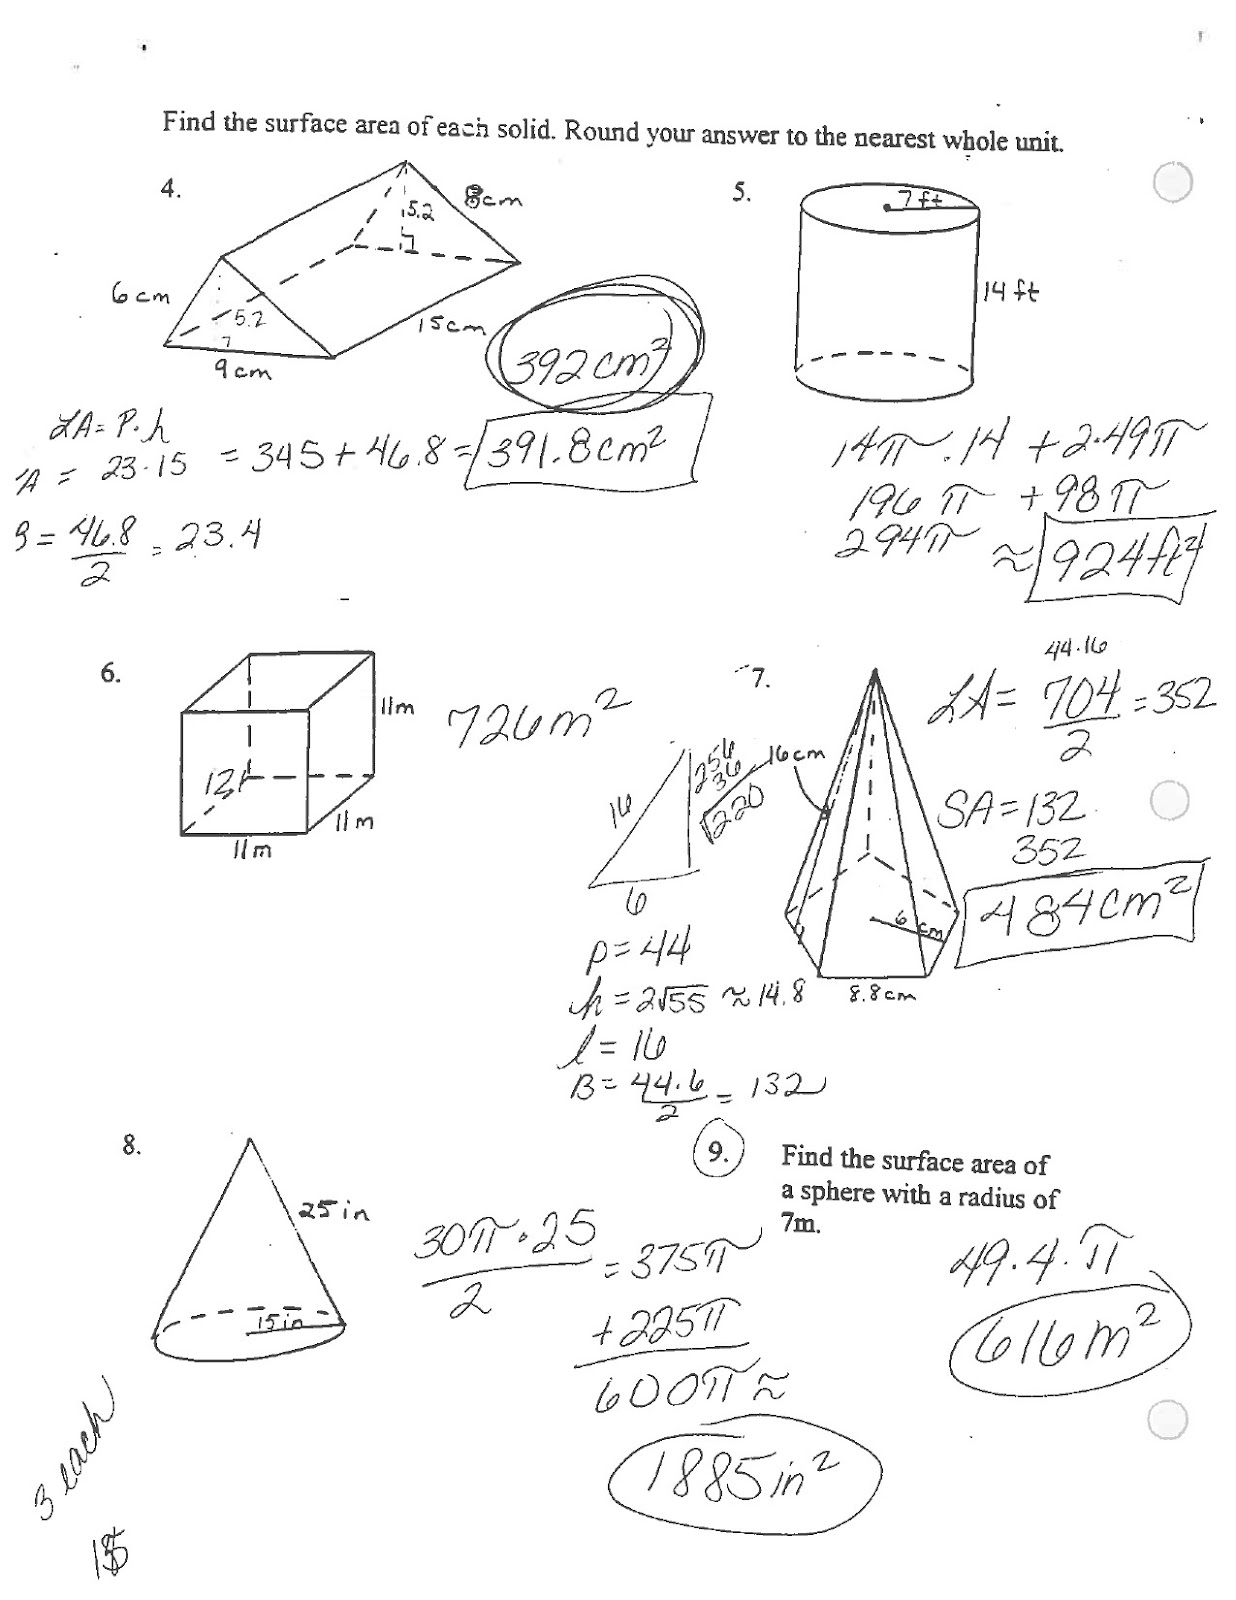 Find the surface area of each solid. Round your answer to the nearest whole unit.
4.
8cm
5.2
6cm
5.2
15cm
9cm
392cm²
LA = P·h
23·15 = 345 + 46.8 = 391.8cm²
B = 46.8/2 = 23.4
5.
7ft
14ft
14π·14 + 2·49π
196π + 98π
294π ≈ 924ft²
6.
11m
11m
11m
726m²
7.
44·16
LA = 704/2 = 352
16cm
256
36
√220
16
6
SA = 132
352
484cm²
6cm
8.8cm
p = 44
h = 2√55 ≈ 14.8
l = 16
B = 44·6/2 = 132
8.
25in
15in
30π·25/2 = 375π
+225π
600π ≈
1885in²
9.
Find the surface area of
a sphere with a radius of
7m.
49·4·π
616m²
3 each